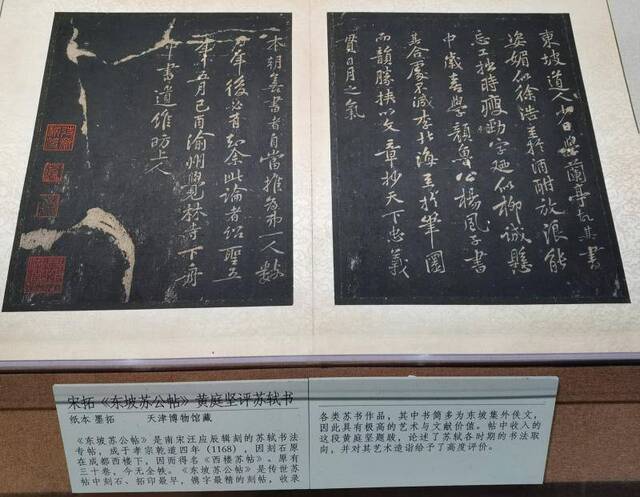 東坡道人少日學蘭亭故其書
姿媚似徐浩至於酒酣放浪能
忘工拙時瘦勁字迺似柳誠懸
中歲喜學顏魯公楊風子書
其合處不減李北海至於筆圓
而韻勝挾以文章妙天下忠義
貫日月之氣
本朝善書者自當推為第一人數
百年後必有知余此論者紹聖五
年五月己酉渝州覺林寺下舟
中書遺維昉上人
宋拓《东坡苏公帖》黄庭坚评苏轼书
纸本 墨拓 天津博物馆藏
《东坡苏公帖》是南宋汪应辰辑刻的苏轼书法
专帖，成于孝宗乾道四年（1168），因刻石原
在成都西楼下，因而得名《西楼苏帖》。原有
三十卷，今无全帙。《东坡苏公帖》是传世苏
帖中刻石、拓印最早，镌字最精的刻帖，收录
各类苏书作品，其中书简多为东坡集外佚文，
因此具有极高的艺术与文献价值。帖中收入的
这段黄庭坚题跋，论述了苏轼各时期的书法取
向，并对其艺术造诣给予了高度评价。